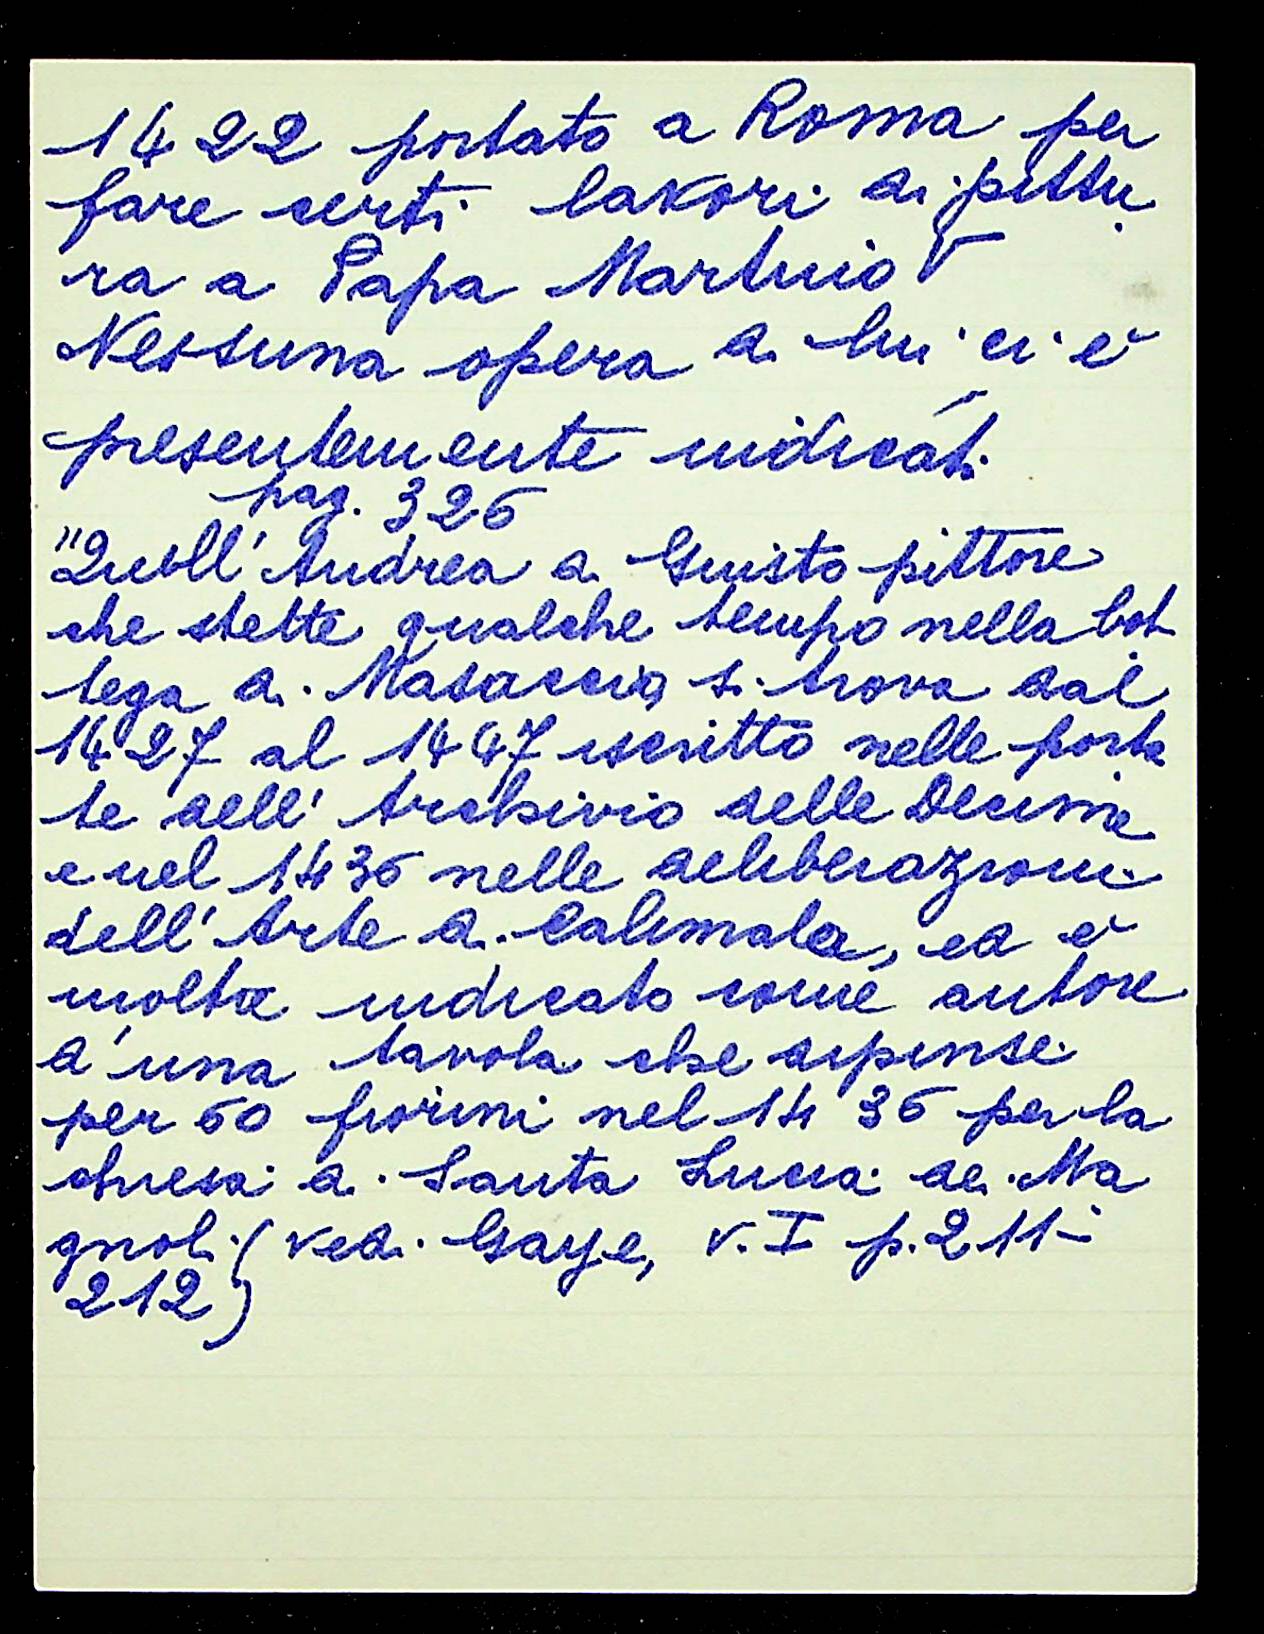 1422 portato a Roma per
fare certi lavori di pittu
ra a Papa Martino V
Nessuna opera di lui ci è
presentemente indicat
pag. 326
"Quell' Andrea di Giusto pittore
che stette qualche tempo nella bot
tega di Masaccio, si trova dal
1427 al 1447 iscritto nelle porta
te dell' Archivio delle Decime
e nel 1436 nelle deliberazioni
dell' Arte di Calimala, ed è
inoltre indicato come autore
d'una tavola che dipinse
per 60 fiorini nel 1436 per la
chiesa di Santa Lucia de Ma
gnoli (vedi Gaye, v. I p. 211-
212)